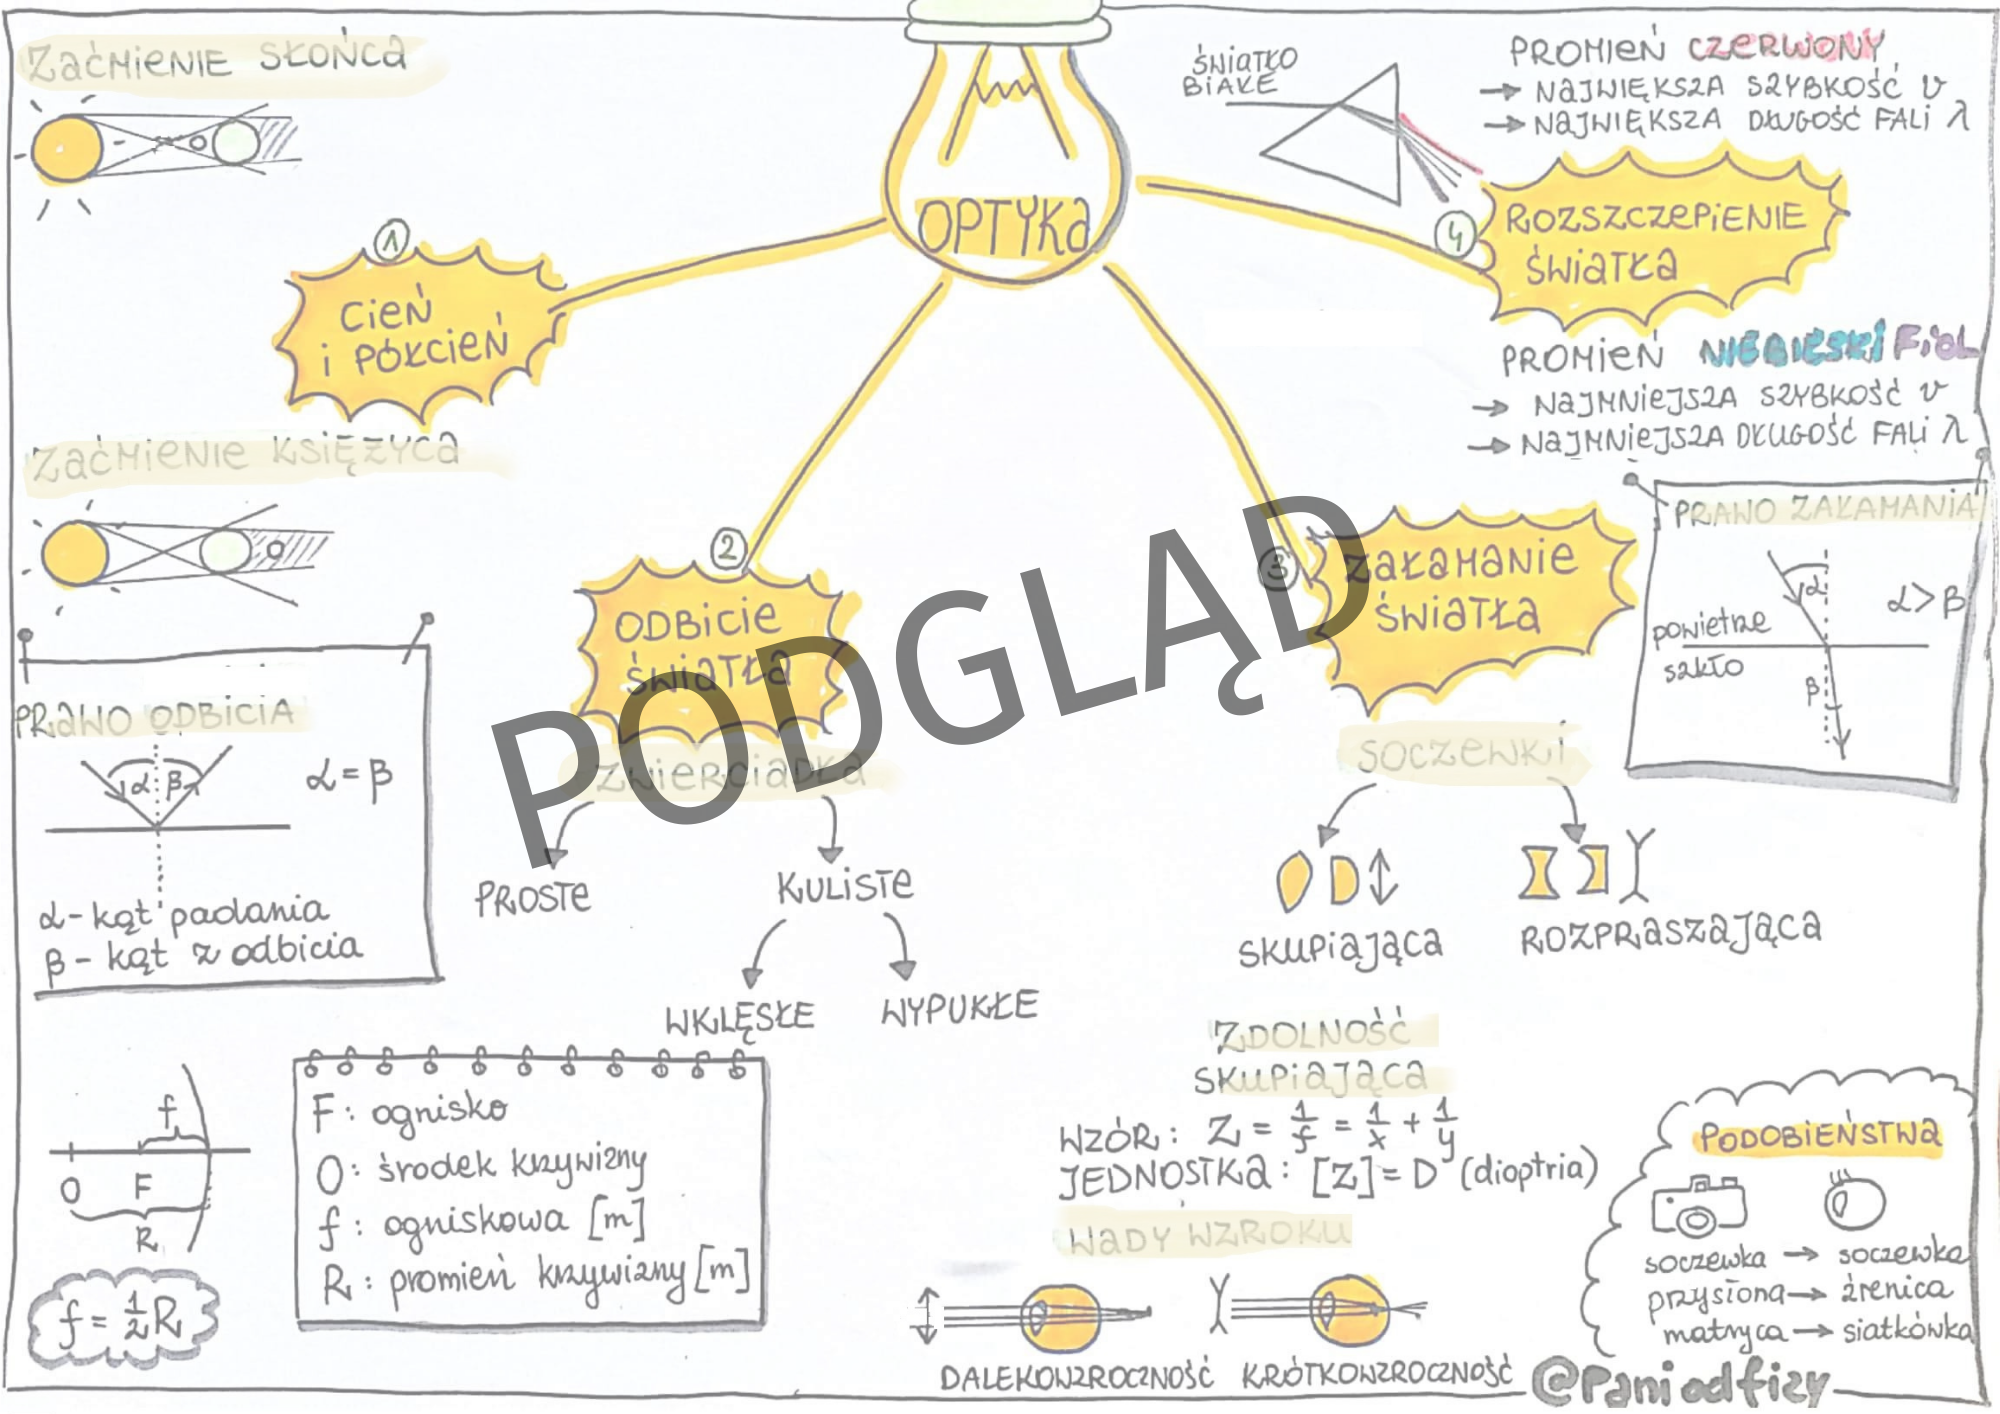 OPTYKA
ZAĆMIENIE SŁOŃCA
1
CIEŃ
I PÓŁCIEŃ
ZAĆMIENIE KSIĘŻYCA
PRAWO ODBICIA
α β
α = β
α - kąt padania
β - kąt z odbicia
f
O F
R
f = 1/2 R
F: ognisko
O: środek krzywizny
f: ogniskowa [m]
R: promień krzywizny [m]
2
ODBICIE
ŚWIATŁA
ZWIERCIADŁA
PROSTE
KULISTE
WKLĘSŁE
WYPUKŁE
3
ZAŁAMANIE
ŚWIATŁA
SOCZEWKI
SKUPIAJĄCA
ROZPRASZAJĄCA
ZDOLNOŚĆ
SKUPIAJĄCA
WZÓR: Z = 1/f = 1/x + 1/y
JEDNOSTKA: [Z] = D (dioptria)
WADY WZROKU
DALEKOWZROCZNOŚĆ
KRÓTKOWZROCZNOŚĆ
PRAWO ZAŁAMANIA
α
α > β
powietrze
szkło
β
ŚWIATŁO
BIAŁE
4
ROZSZCZEPIENIE
ŚWIATŁA
PROMIEŃ CZERWONY
→ NAJWIĘKSZA SZYBKOŚĆ v
→ NAJWIĘKSZA DŁUGOŚĆ FALI λ
PROMIEŃ NIEBIESKI FIOL
→ NAJMNIEJSZA SZYBKOŚĆ v
→ NAJMNIEJSZA DŁUGOŚĆ FALI λ
PODOBIEŃSTWA
soczewka → soczewka
przysłona → źrenica
matryca → siatkówka
@Paniodfizy
PODGLĄD